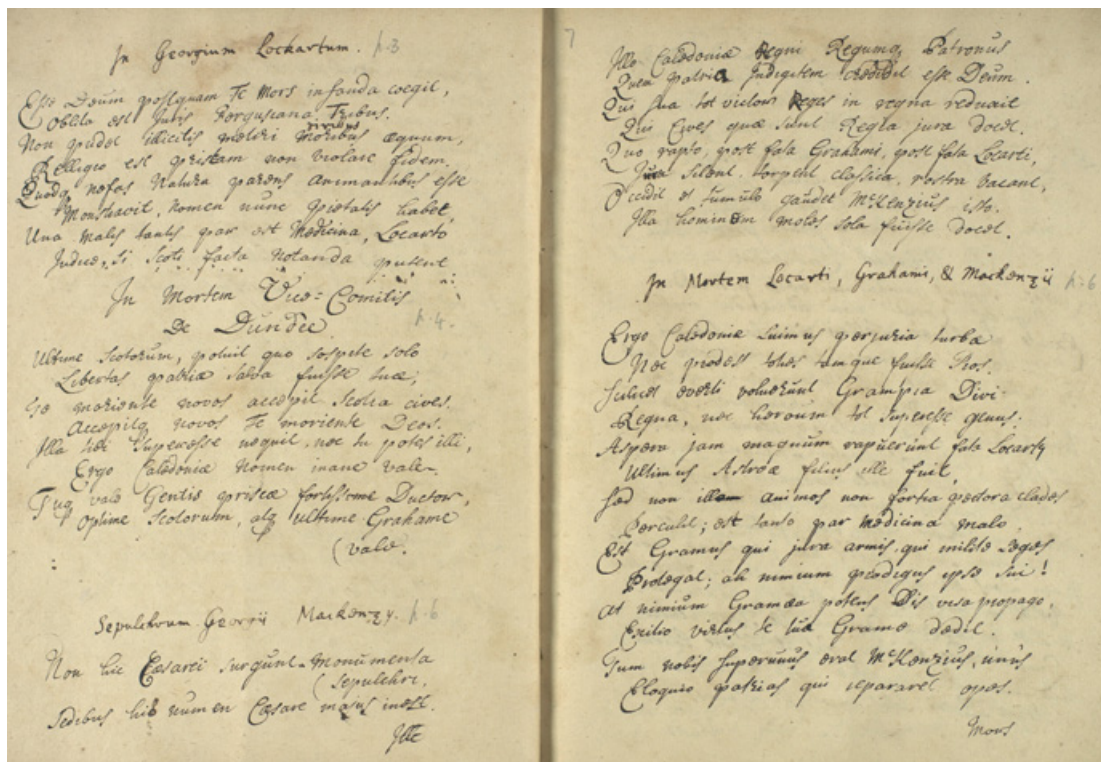 In Georgium Lockartum. p.3
Esse Deum postquam Te Mors infanda coegit,
Oblita est juris Fergusiana Tribus.
Non pudet illicitis metiri viribus moribus æquum,
Relligio est priscam non violare fidem.
Quodq nefas Natura parens animantibus esse
Monstravit, nomen nunc pietatis habet,
Una malis tantis par est Medicina, Locarto
Judice, si Scoti facta notanda putent
In Mortem Vice=Comitis
De Dundee p.4.
Ultime Scotorum, potuit quo sospite solo
Libertas patriæ salva fuisse tuæ;
Te moriente novos accepit Scotia cives.
Accepitq novos Te moriente Deos.
Illa tibi superesse nequit, nec tu potes illi,
Ergo Caledoniæ Nomen inane vale.
Tuq vale Gentis priscæ fortissime Ductor,
Optime Scotorum, atq ultime Grahame
(vale.
Sepulchrum Georgii Mackenzy. p.6
Non hic Cæsarei surgunt Monumenta
(sepulchri.
Sedibus his numen Cæsare majus inest.
Ille
7
Ille Caledoniæ Regni Regumq Patronus
Quem patria Indigitem credidit esse Deum.
Qui sua tot victor Reges in regna reduxit
Qui Cives quæ sunt Regia jura docet.
Quo rapto, post fata Grahami, post fata Locarti,
Jura silent, torpent classica, rostra vacant,
Occidit et tumulo gaudet McKenzius isto.
Illa hominem moles sola fuisse docet.
In Mortem Locarti, Grahami, & Mackenzii p.6
Ergo Caledoniæ luimus perjuria turba
Nec prodest toties tamque fuisse Pios.
Scilicet everti voluerunt Grampia Divi
Regna, nec heroum tot superesse genus.
Aspera jam magnum rapuerunt fata Locarty
Ultimus Astrææ filius ille fuit,
Sed non animos non fortia pectora clades
Perculit; est tanto par medicina malo
Est Gramus qui jura armis, qui milite leges
Protegat; ah nimium prodigus ipse sui!
At nimium Gramæa potens Dis visa propago,
Exitio virtus te tua Grame dedit.
Tum nobis superunus erat McKenzius, unus
Eloquio patrias qui repararet opes.
Mors